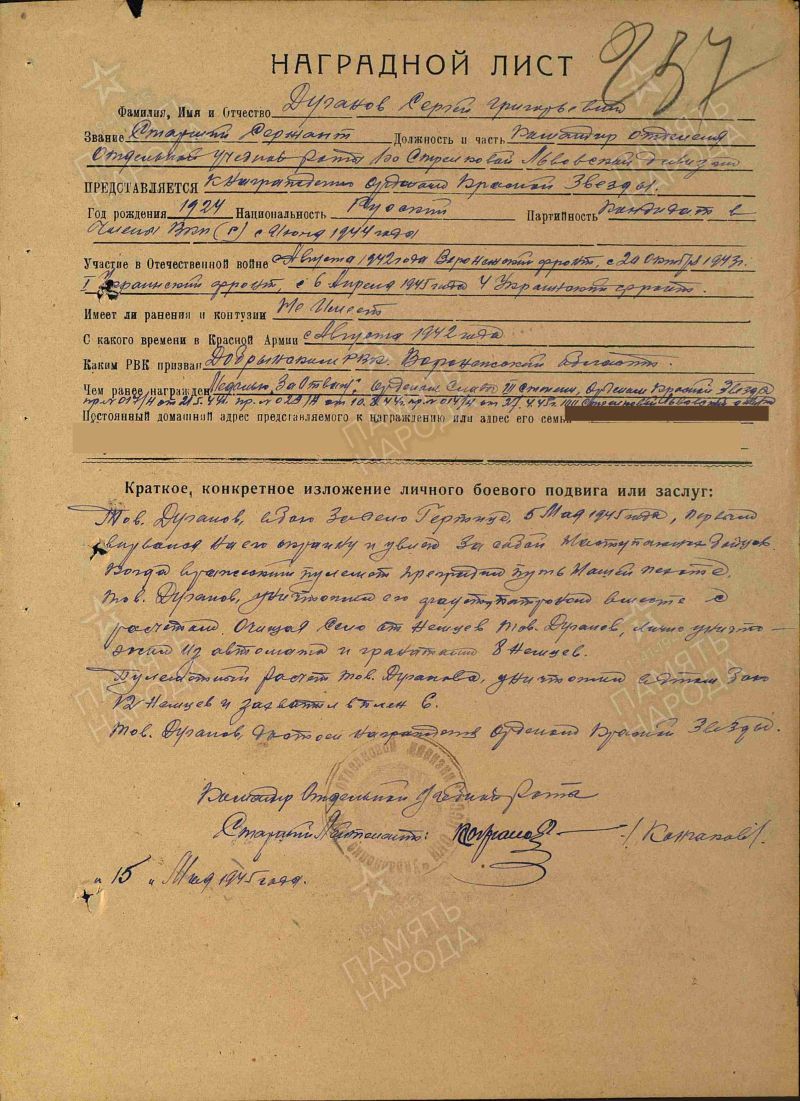 НАГРАДНОЙ ЛИСТ
257
Фамилия, Имя и Отчество Дуганов Сергей Григорьевич
Звание Старший Сержант Должность и часть Командир отделения
Отдельной учебной роты Стрелковой Львовской дивизии
ПРЕДСТАВЛЯЕТСЯ к награждению орденом Красной Звезды.
Год рождения 1924 Национальность Руский Партийность Кандидат в
Члены ВКП(б) с Июня 1944 года
Участие в Отечественной войне с Августа 1942 года Воронежский фронт, с 20 октября 1943 г.
I Украинский фронт, с 6 Апреля 1945 года 4 Украинский фронт.
Имеет ли ранения и контузии Не Имеет
С какого времени в Красной Армии с Августа 1942 года
Каким РВК призван Добрынским РВК Воронежской области.
Чем ранее награжден Медалью "За Отвагу", Орденом Славы III степени, Орденом Красной Звезды
пр. № 017/н от пр. № 023/н от пр. № 014/н от Стрелковой Львовской
Постоянный домашний адрес представляемого к награждению или адрес его семьи
Краткое, конкретное изложение личного боевого подвига или заслуг:
Тов. Дуганов, в бою за село 5 Мая 1945 года, первым
ворвался на его окраину и увлёк за собой наступающих бойцов.
Когда вражеский пулемёт преградил путь нашей пехоте,
тов. Дуганов, уничтожил его фаустпатроном вместе с
расчётом. Очищая село от немцев тов. Дуганов, лично уничто-
жил из автомата и гранатами 8 немцев.
Пулемётный расчёт тов. Дуганова, уничтожил в этом бою
12 немцев и захватил в плен 6.
Тов. Дуганов, достоен награждения орденом Красной Звезды.
Командир Отдельной Учебной Роты
Старший Лейтенант:
" 15 " Мая 1945 года.
ПАМЯТЬ
НАРОДА